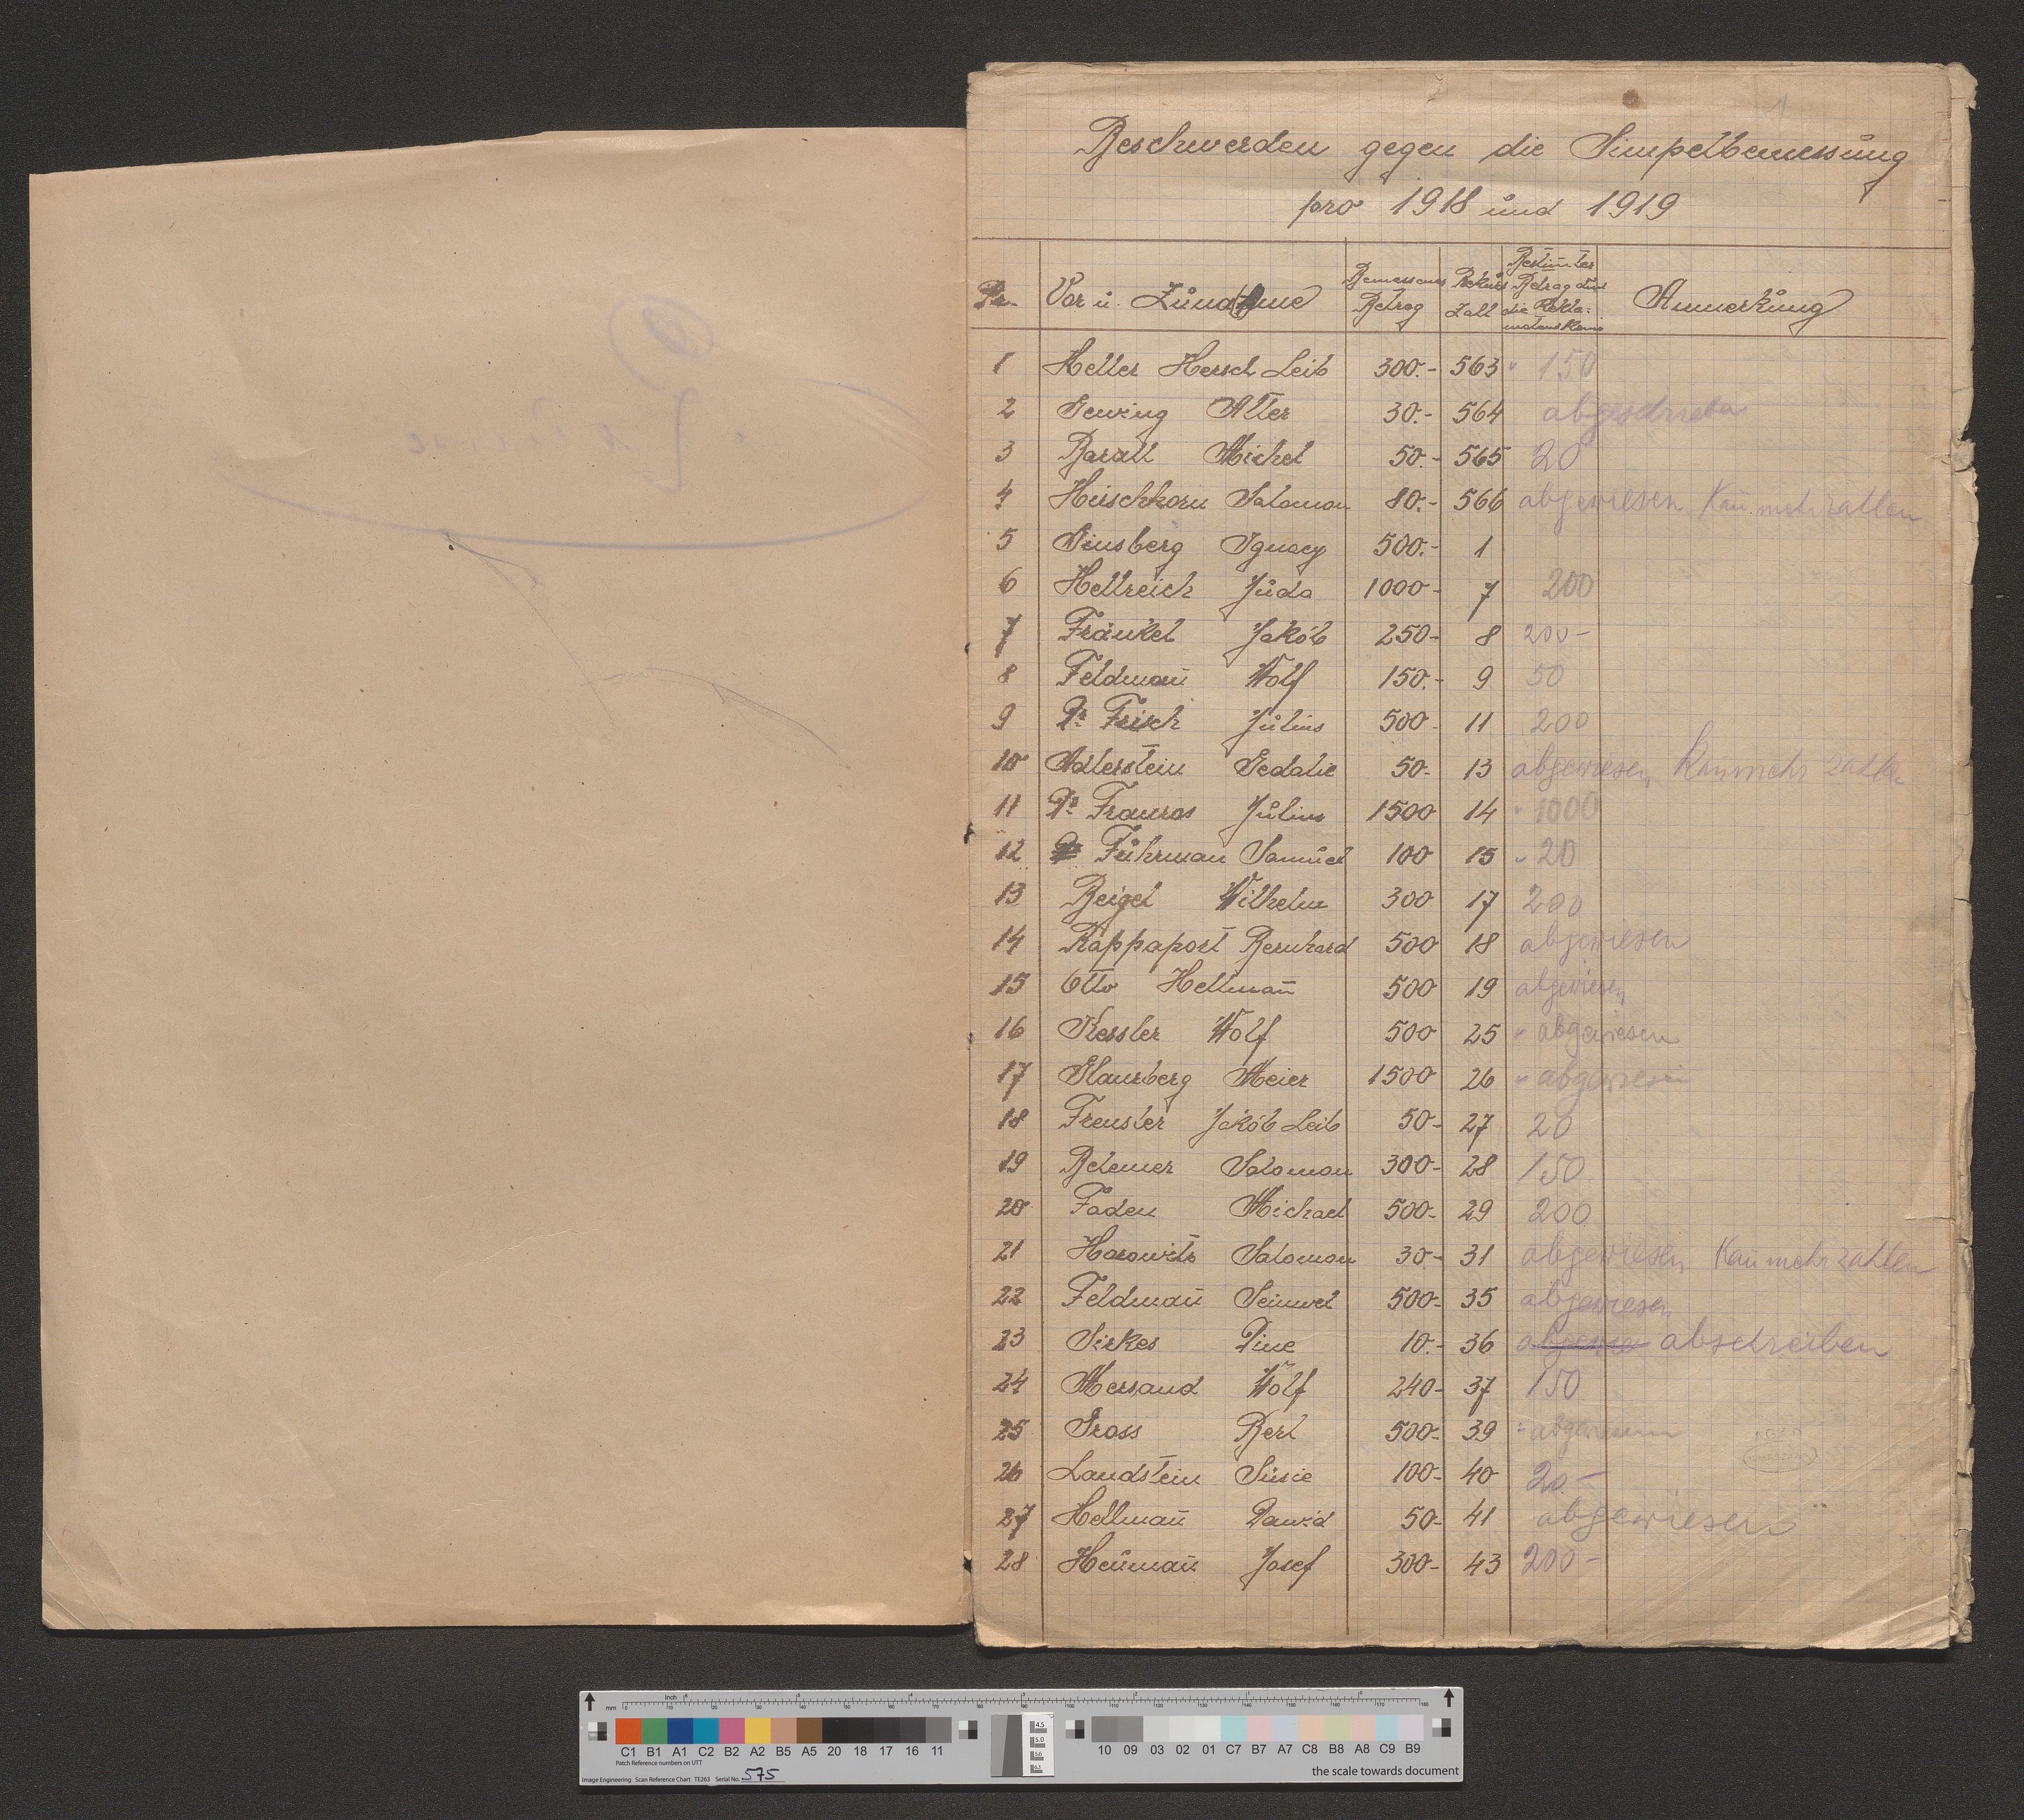 Beschwerden gegen die Simpelbemessung
pro 1918 und 1919
Nr. Vor u. Zuname Bemessener Betrag Rekurs Zall Bestimter Betrag die Rekla: Anmerkung
1 Heller Hersch Leib 300.- 563 " 150
2 Gewing Alter 30.- 564 abgeschrieben
3 Barall Michel 50.- 565 20
4 Hirschhorn Salomon 80.- 566 abgewiesen Kan̄ mehr zallen
5 Ginsberg Ignacy 500.- 1
6 Hellreich Juda 1000- 7 200
7 Fränkel Jakób 250- 8 200-
8 Feldman̄ Wolf 150.- 9 50
9 Dr. Frisch Julius 500- 11 200
10 Adlerstein Gedalie 50- 13 abgewiesen Kan mehr zallen
11 Dr. Frauros Julius 1500 14 " 1000
12 Fuhrman Samuel 100 15 " 20
13 Beigel Wilhelm 300 17 200
14 Rappaport Bernhard 500 18 abgewiesen
15 Otto Hellman̄ 500 19 abgewiesen
16 Kessler Wolf 500 25 " abgewiesen
17 Glansberg Meier 1500 26 " abgewiesen
18 Frenster Jakób Leib 50- 27 20
19 Belemer Salomon 300- 28 150
20 Faden Michael 500- 29 200
21 Horowitz Salomon 30- 31 abgewiesen Kan̄ mehr zahlen
22 Feldman̄ Seinwel 500- 35 abgewiesen
23 Sirkes Dine 10.- 36 abschreiben
24 Messand Wolf 240- 37 150
25 Gross Berl 500- 39 " abgewiesen
26 Landstein Süsie 100- 40 20.-
27 Hellman̄ Dawid 50- 41 abgewiesen
28 Heuman̄ Josef 300- 43 200-
mm Inch
C1 B1 A1 C2 B2 A2 B5 A5 20 18 17 16 11 10 09 03 02 01 C7 B7 A7 C8 B8 A8 C9 B9
Patch Reference numbers on UTT
Image Engineering Scan Reference Chart TE263 Serial No. 575 the scale towards document